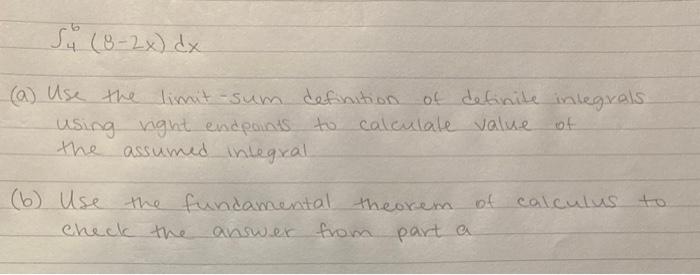 ∫₄⁶ (8-2x) dx
(a) Use the limit-sum definition of definite integrals
using right endpoints to calculate value of
the assumed integral
(b) Use the fundamental theorem of calculus to
check the answer from part a